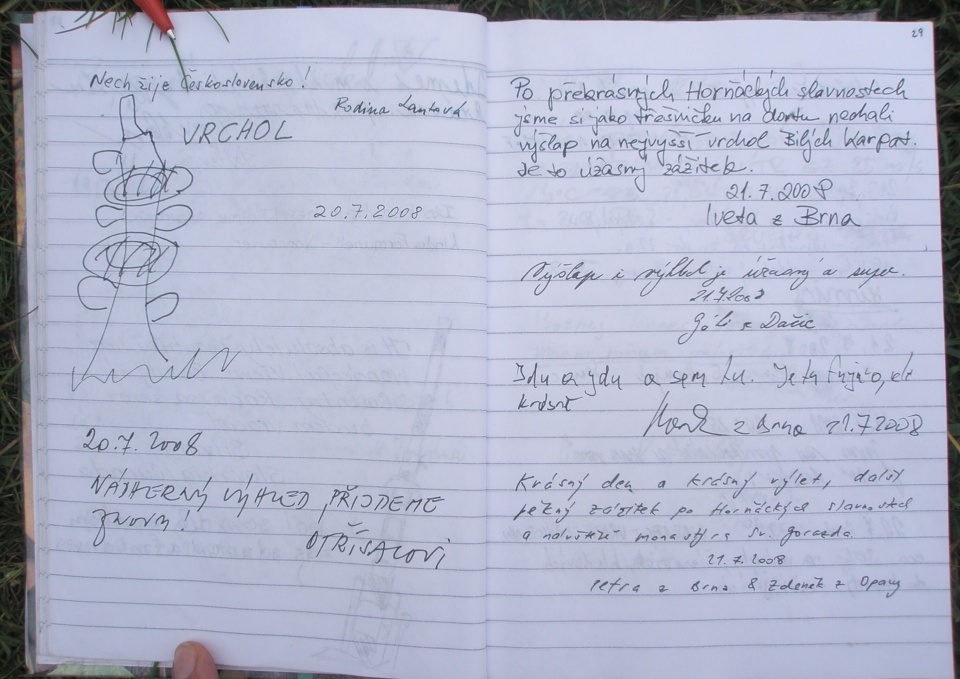 Nech žije Československo!
Rodina
VRCHOL
20.7.2008
20.7.2008
NÁDHERNÝ VÝHLED PŘIJDEME
ZNOVU!
OTŘÍSALOVI
29
Po překrásných Horňáckých slavnostech
jsme si jako třešničku na dortu nechali
výšlap na nejvyšší vrchol Bílých Karpat.
Je to úžasný zážitek.
21.7.2008
Iveta z Brna
Výšlap i výhled je úžasný a super.
21.7.2008
z Dačic
Jdu a jdu a sem tu. Je tu
krásně
z Brna 21.7.2008
Krásný den a krásný výlet, další
pěkný zážitek po Horňáckých slavnostech
a monastýra sv. Gorazda.
21.7.2008
Petra z Brna & Zdeněk z Opavy